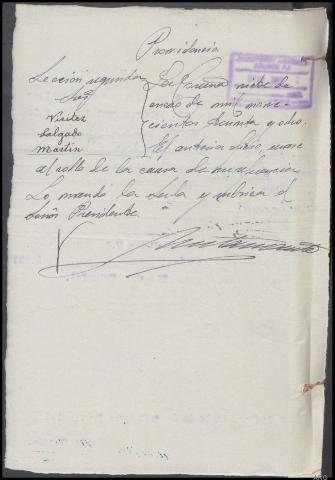 Providencia
Sección segunda
Sres
Viñdez
Salgado
Martin
La Coruña siete de
enero de mil nove-
cientos treinta y ocho.
El anterior oficio, unase
al rollo de la causa de su referencia
Lo mandó la Sala y rubrica el
Señor Presidente